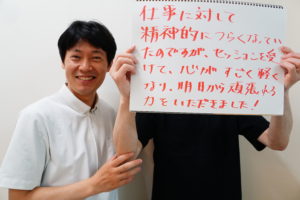 仕事に対して
精神的につらくなってい
たのですが、セッションを受
けて、心がすごく軽く
なり、明日から頑張れる
力をいただきました!